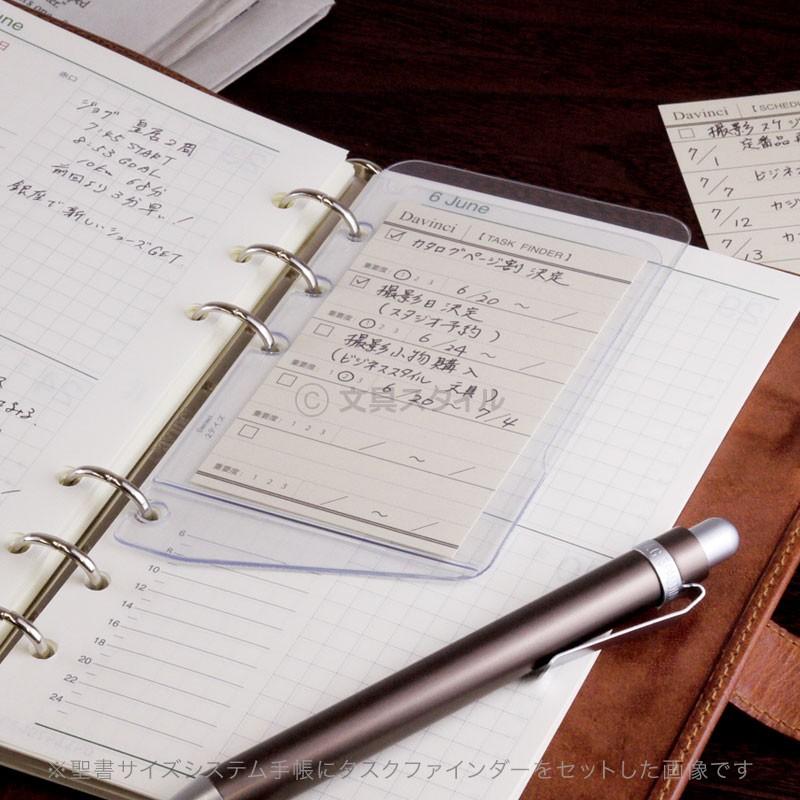 June
赤口
ジョグ 皇居2周
7:45 START
8:53 GOAL
10km 68分
前回より3分早い!
銀座で新しいシューズGET
6 June
Davinci 【TASK FINDER】
カタログページ割 決定
重要度: 1 2 3 6/20 ~ /
撮影日 決定
(スタジオ予約)
重要度: 1 2 3 6/24 ~ /
撮影小物購入
(ビジネススタイル 文具)
重要度: 1 2 3 6/20 ~ 7/4
重要度: 1 2 3 / ~ /
重要度: 1 2 3 / ~ /
Davinci
6
8
10
12
14
16
18
20
22
24
Davinci 【SCHED
撮影スケジ
7/1 定番品
7/7 ビジネス
7/12 カジ
7/13 カ
© 文具スタイル
※聖書サイズシステム手帳にタスクファインダーをセットした画像です